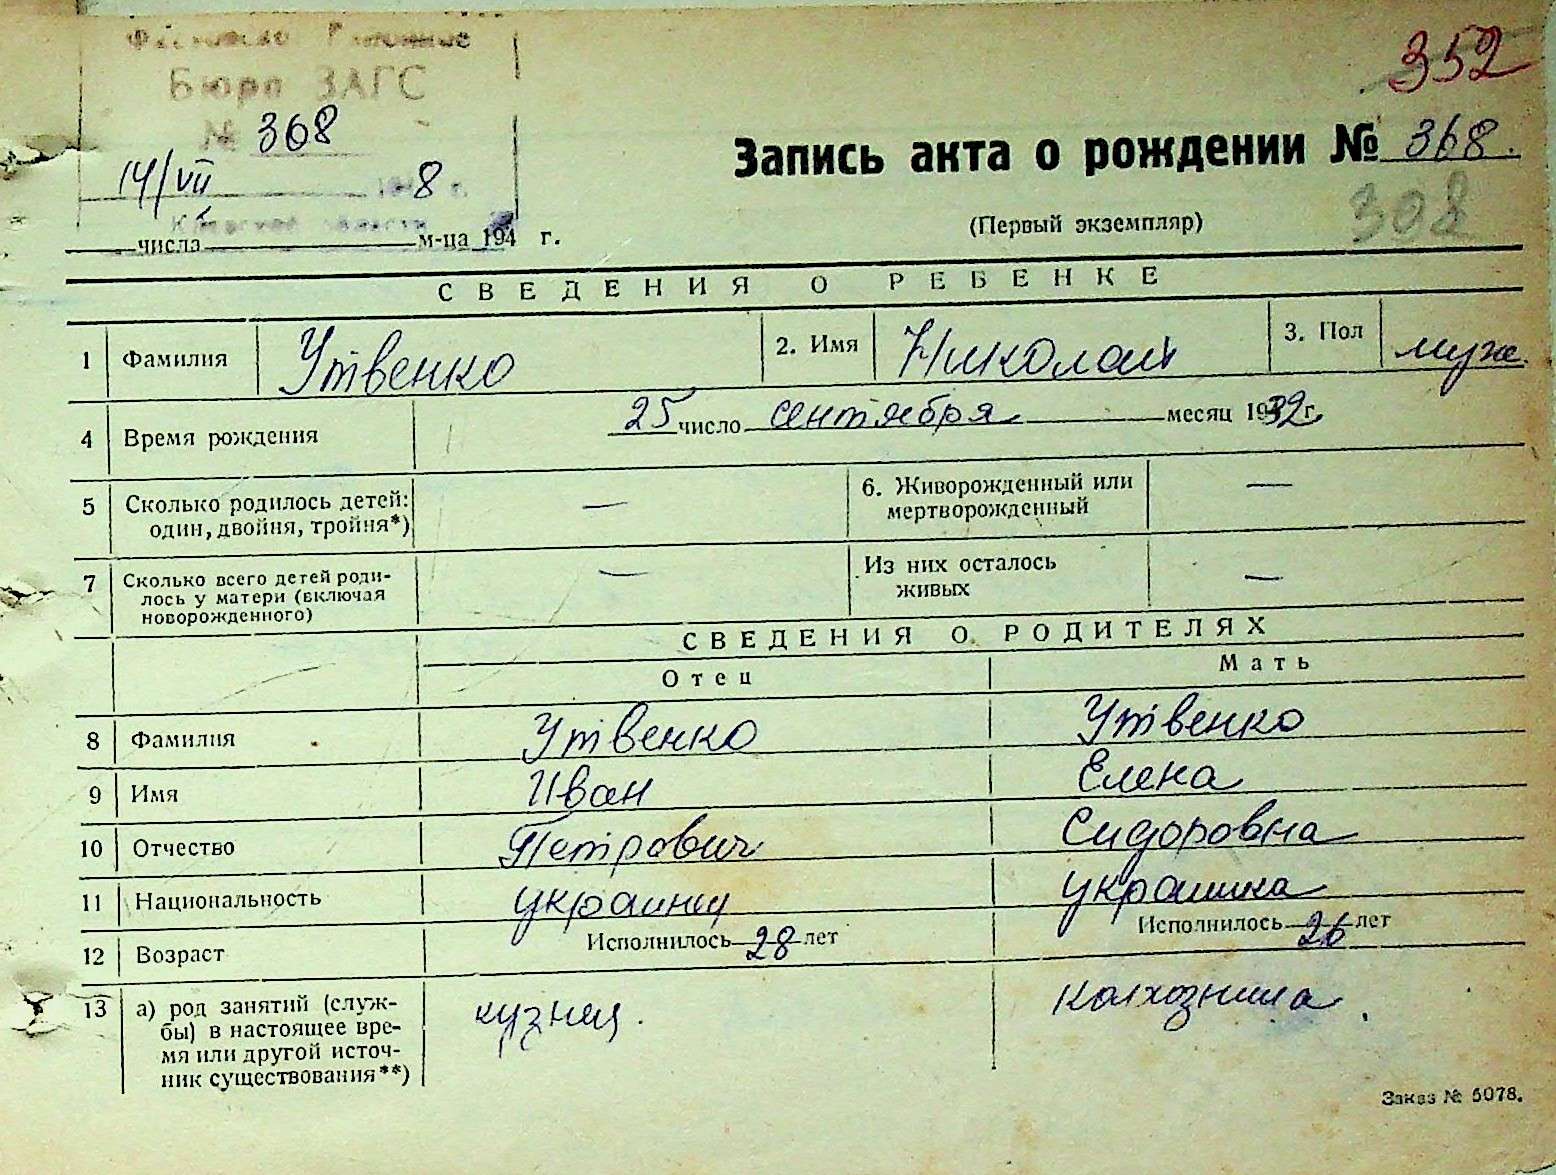 Бюро ЗАГС
352
№ 368
Запись акта о рождении № 368.
14/VII 1948 г.
308
Киевской области
(Первый экземпляр)
числа м-ца 194 г.
СВЕДЕНИЯ О РЕБЕНКЕ
1 Фамилия Утвенко 2. Имя Николай 3. Пол муж.
4 Время рождения 25 число сентября месяц 1932 г.
5 Сколько родилось детей: — 6. Живорожденный или —
один, двойня, тройня*) мертворожденный
7 Сколько всего детей роди- — Из них осталось —
лось у матери (включая живых
новорожденного)
СВЕДЕНИЯ О РОДИТЕЛЯХ
Отец Мать
8 Фамилия Утвенко Утвенко
9 Имя Иван Елена
10 Отчество Петрович Сидоровна
11 Национальность украинец украинка
12 Возраст Исполнилось 28 лет Исполнилось 26 лет
13 а) род занятий (служ- кузнец. колхозница.
бы) в настоящее вре-
мя или другой источ-
ник существования**)
Заказ № 5078.